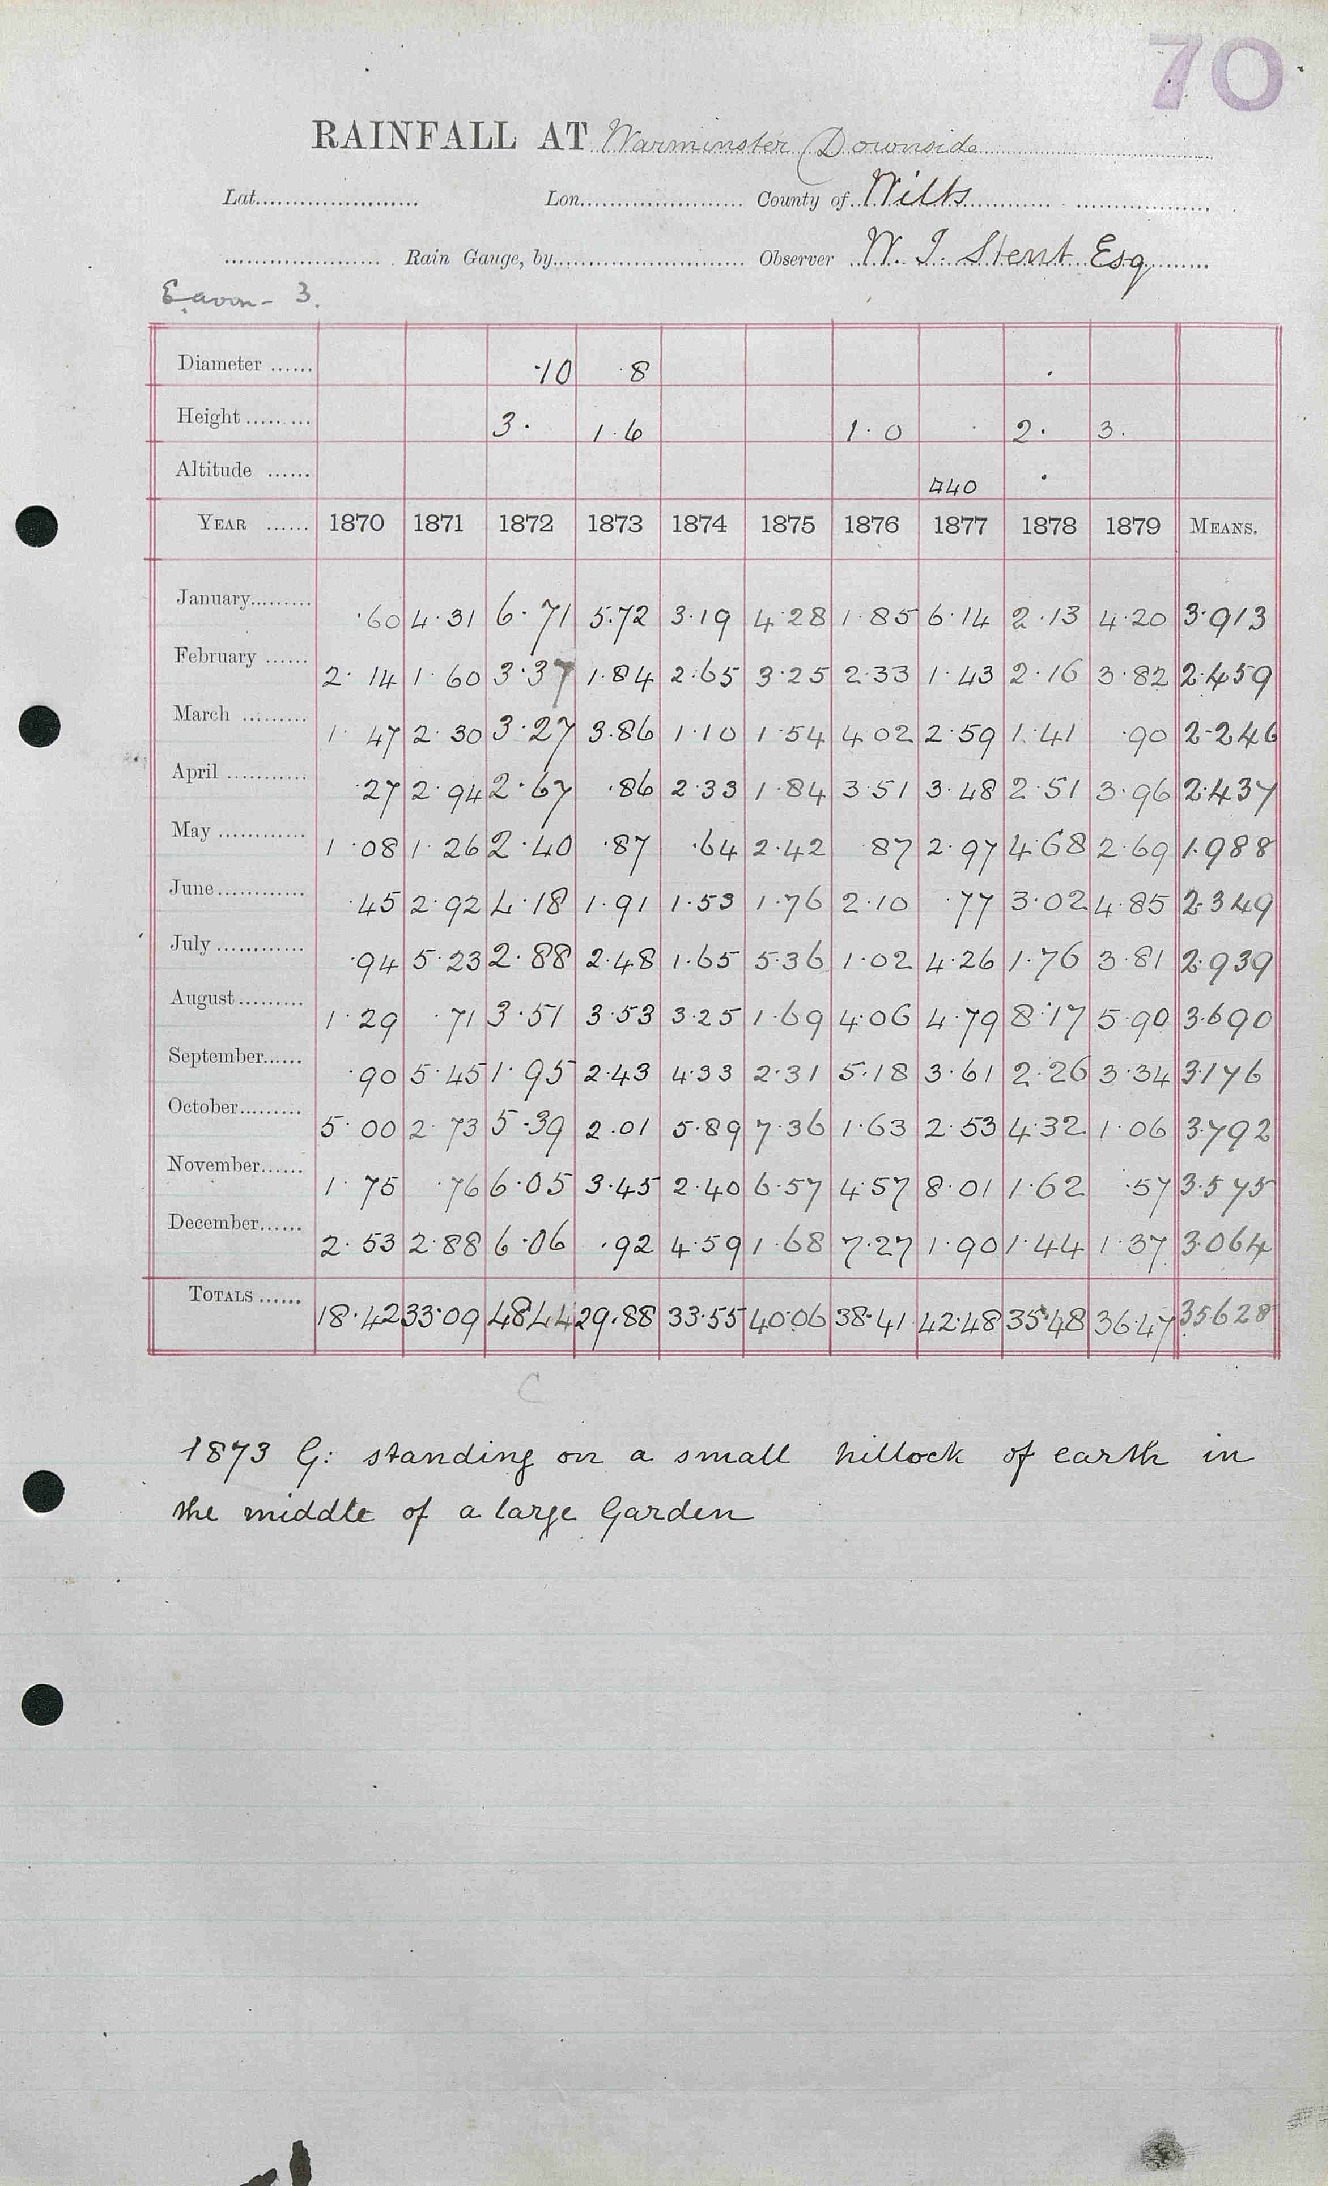 70
RAINFALL AT Warminster (Downside
Lat. Lon. County of Wilts
Rain Gauge, by Observer W. J. Stent Esq
Eavon - 3.
Diameter ...... ·10 ·8
Height ......... 3· 1·6 1·0 2· 3·
Altitude ...... 440
YEAR ...... 1870 1871 1872 1873 1874 1875 1876 1877 1878 1879 MEANS.
January ......... ·60 4·31 6·71 5·72 3·19 4·28 1·85 6·14 2·13 4·20 3·913
February ...... 2·14 1·60 3·37 1·84 2·65 3·25 2·33 1·43 2·16 3·82 2·459
March ......... 1·47 2·30 3·27 3·86 1·10 1·54 4·02 2·59 1·41 ·90 2·246
April ............ ·27 2·94 2·67 ·86 2·33 1·84 3·51 3·48 2·51 3·96 2·437
May ............ 1·08 1·26 2·40 ·87 ·64 2·42 87 2·97 4·68 2·69 1·988
June ............ ·45 2·92 4·18 1·91 1·53 1·76 2·10 ·77 3·02 4·85 2·349
July ............ ·94 5·23 2·88 2·48 1·65 5·36 1·02 4·26 1·76 3·81 2·939
August ......... 1·29 ·71 3·51 3·53 3·25 1·69 4·06 4·79 8·17 5·90 3·690
September ...... ·90 5·45 1·95 2·43 4·33 2·31 5·18 3·61 2·26 3·34 3·176
October ......... 5·00 2·73 5·39 2·01 5·89 7·36 1·63 2·53 4·32 1·06 3·792
November ...... 1·75 ·76 6·05 3·45 2·40 6·57 4·57 8·01 1·62 ·57 3·575
December ...... 2·53 2·88 6·06 ·92 4·59 1·68 7·27 1·90 1·44 1·37 3·064
TOTALS ...... 18·42 33·09 48·44 29·88 33·55 40·06 38·41 42·48 35·48 36·47 35·628
C
1873 G: standing on a small hillock of earth in
the middle of a large Garden